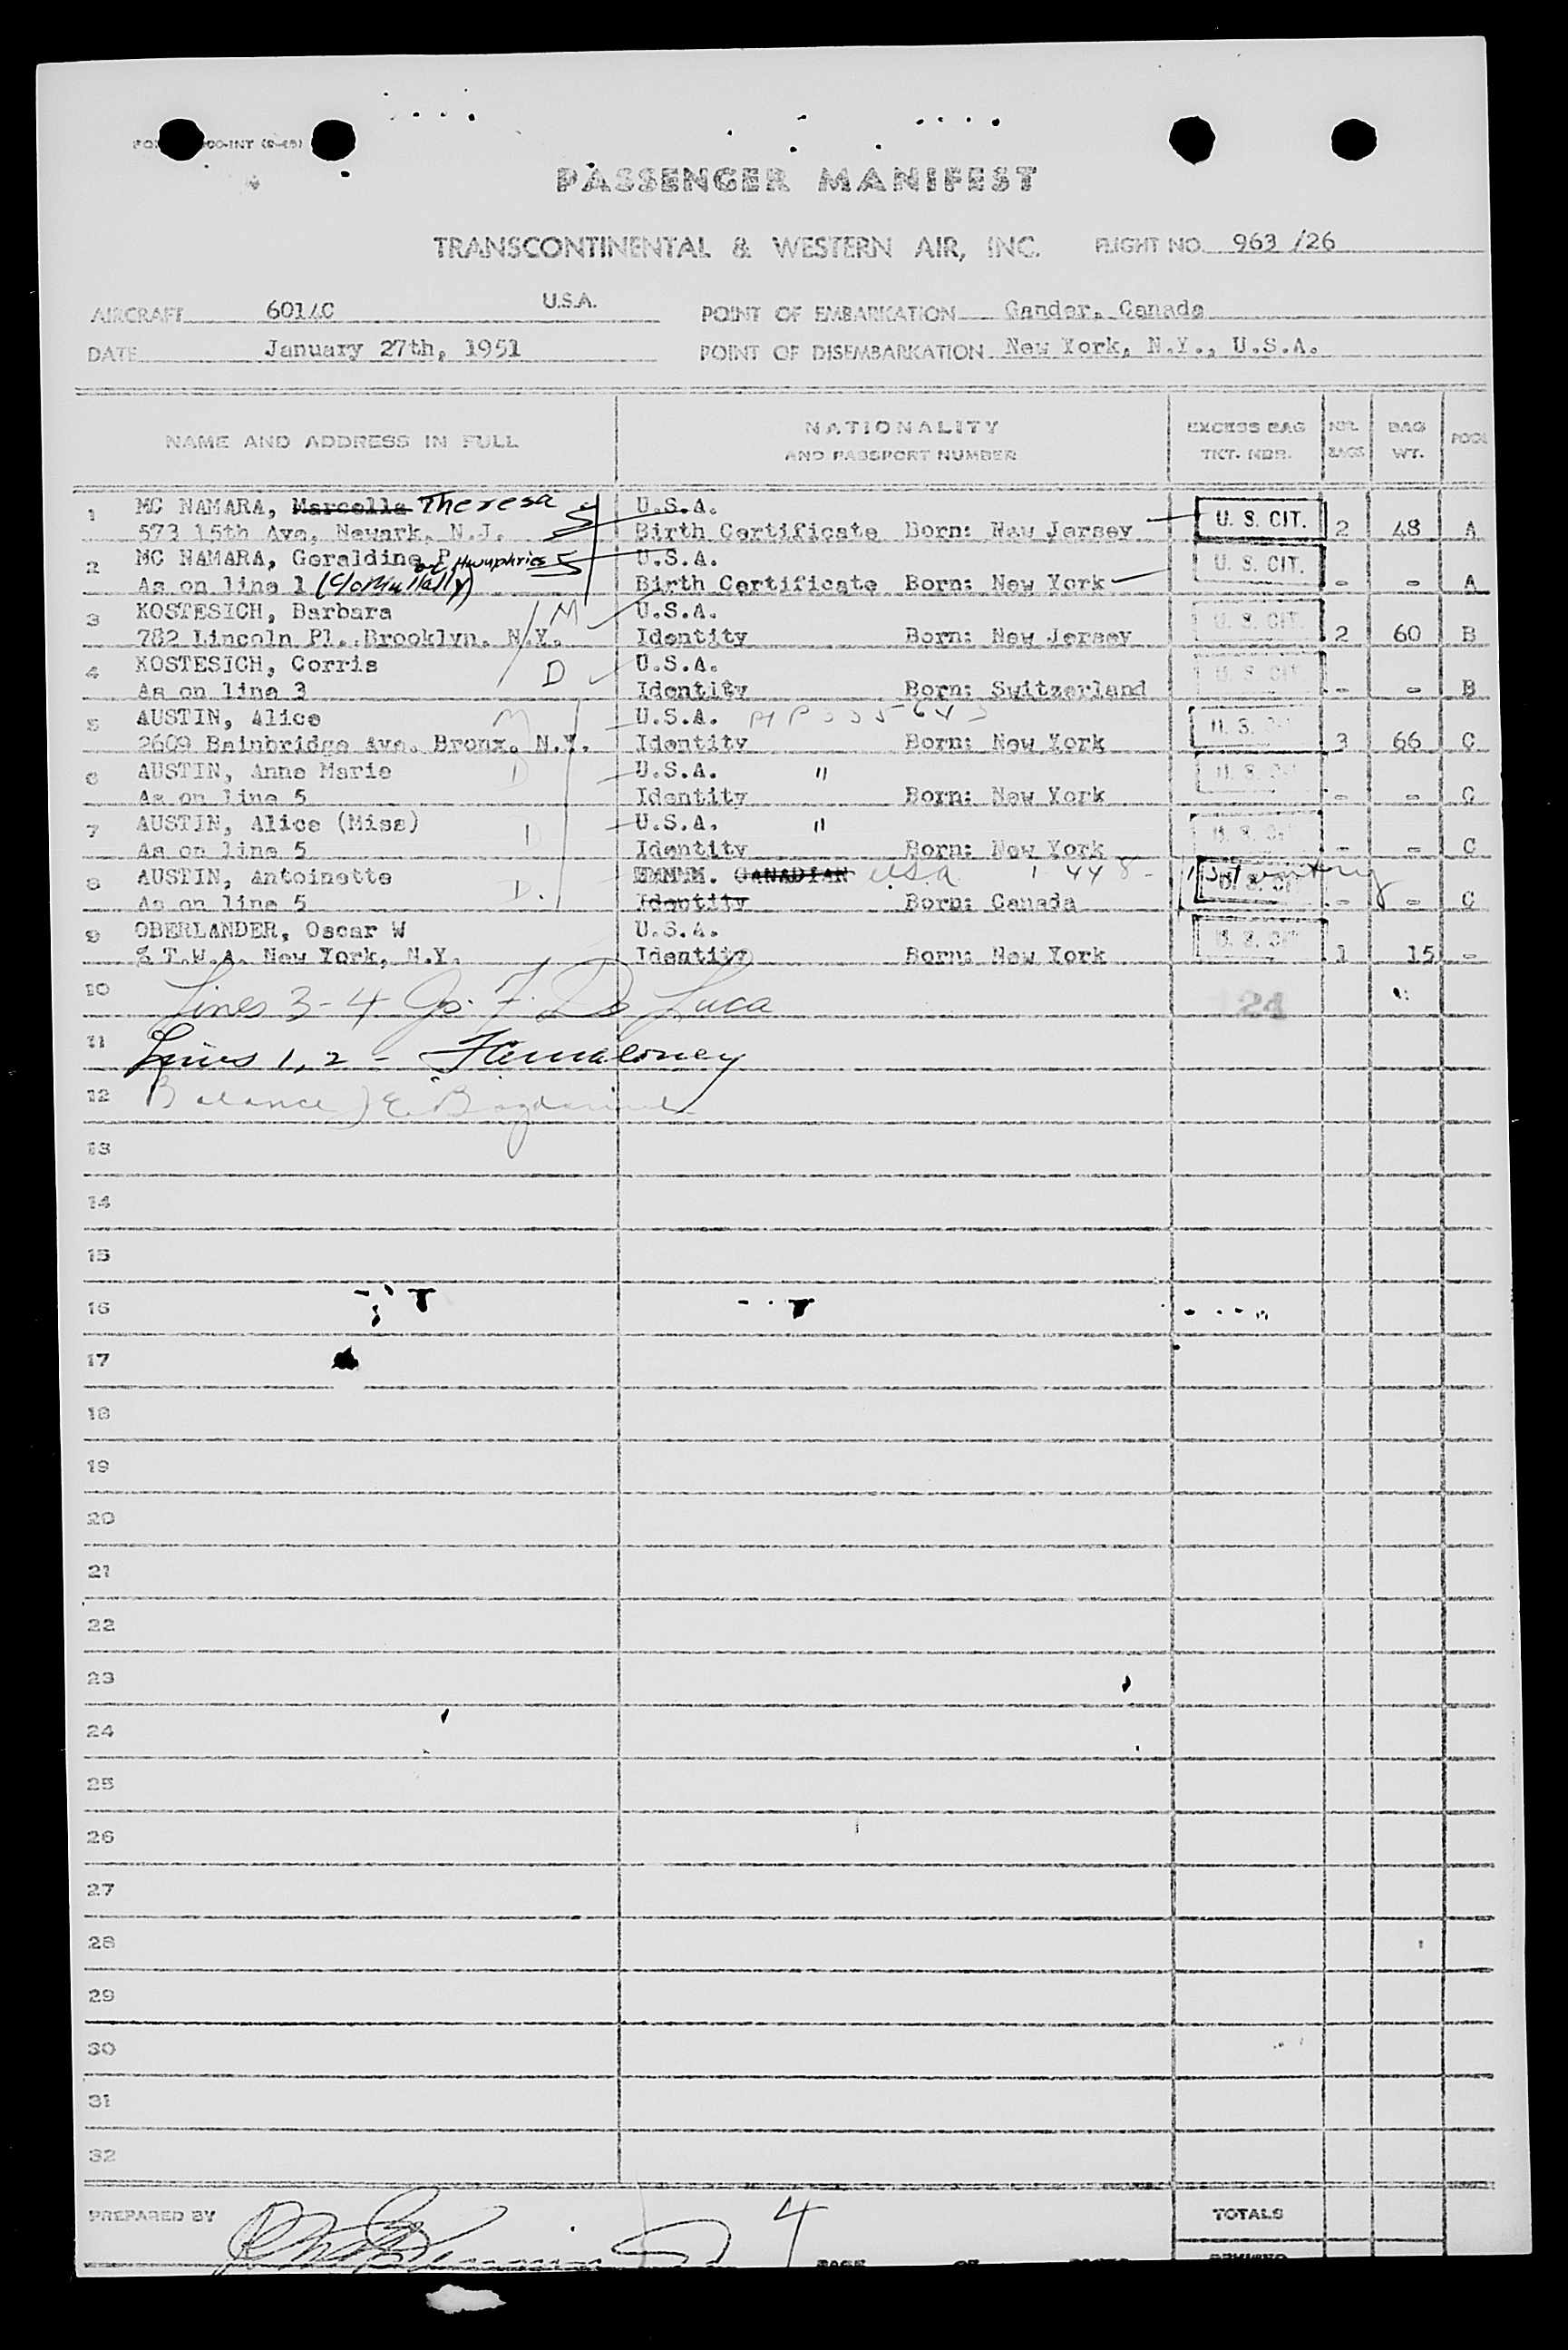 PASSENGER MANIFEST
TRANSCONTINENTAL & WESTERN AIR, INC. FLIGHT NO. 963 /26
AIRCRAFT 6014C U.S.A. POINT OF EMBARKATION Gander, Canada
DATE January 27th, 1951 POINT OF DISEMBARKATION New York, N.Y., U.S.A.
NAME AND ADDRESS IN FULL NATIONALITY AND PASSPORT NUMBER EXCESS BAG TKT. NBR. NBR. BAGS BAG WT. POOL
1 MC NAMARA, Marcella Theresa U.S.A.
573 15th Ave, Newark, N.J. Birth Certificate Born: New Jersey U. S. CIT. 2 48 A
2 MC NAMARA, Geraldine P Humphries U.S.A.
As on line 1 (c/o Mullally) Birth Certificate Born: New York U. S. CIT. - - A
3 KOSTESICH, Barbara M U.S.A.
782 Lincoln Pl. Brooklyn, N.Y. Identity Born: New Jersey U. S. CIT. 2 60 B
4 KOSTESICH, Corris D U.S.A.
As on line 3 Identity Born: Switzerland U. S. CIT - - B
5 AUSTIN, Alice M U.S.A.
2609 Bainbridge Ave. Bronx, N.Y. Identity Born: New York U. S. 3 66 C
6 AUSTIN, Anne Marie D U.S.A. "
As on line 5 Identity Born: New York U. S. - - C
7 AUSTIN, Alice (Miss) D U.S.A. "
As on line 5 Identity Born: New York U. S. - - C
8 AUSTIN, Antoinette D. CANADIAN USA 1st entry
As on line 5 Identity Born: Canada U. S. CI - - C
9 OBERLANDER, Oscar W U.S.A.
% T.W.A. New York, N.Y. Identity Born: New York U. S. CI 1 15 -
10 Lines 3-4 Jos. F. De Luca 24
11 Lines 1, 2 - Maloney
12 Balance) E.
13
14
15
16
17
18
19
20
21
22
23
24
25
26
27
28
29
30
31
32
PREPARED BY 4 TOTALS
PAGE OF